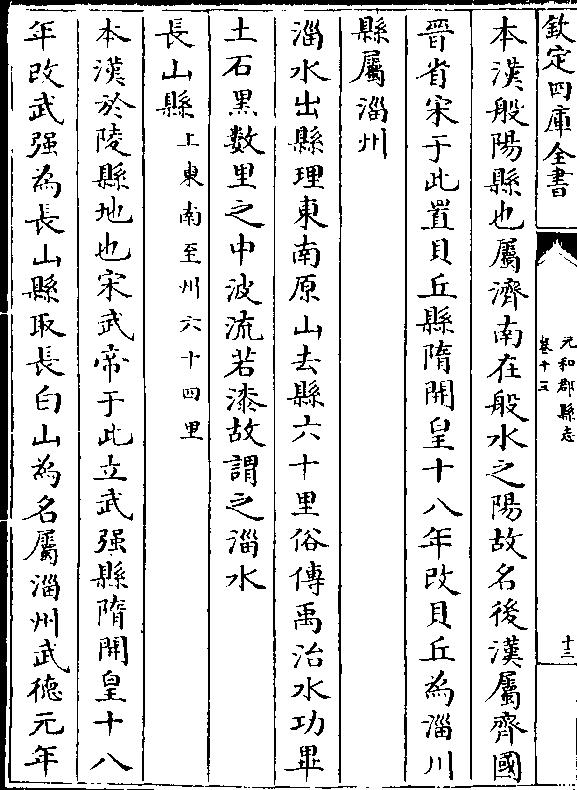 欽定四庫全書
元和郡縣志
卷十三
十三
本漢般陽縣也屬濟南在般水之陽故名後漢屬齊國
晉省宋于此置貝丘縣隋開皇十八年改貝丘為淄川
縣屬淄州
淄水出縣理東南原山去縣六十里俗傳禹治水功畢
土石黑數里之中波流若漆故謂之淄水
長山縣上東南至州六十四里
本漢於陵縣地也宋武帝于此立武强縣隋開皇十八
年改武强為長山縣取長白山為名屬淄州武德元年